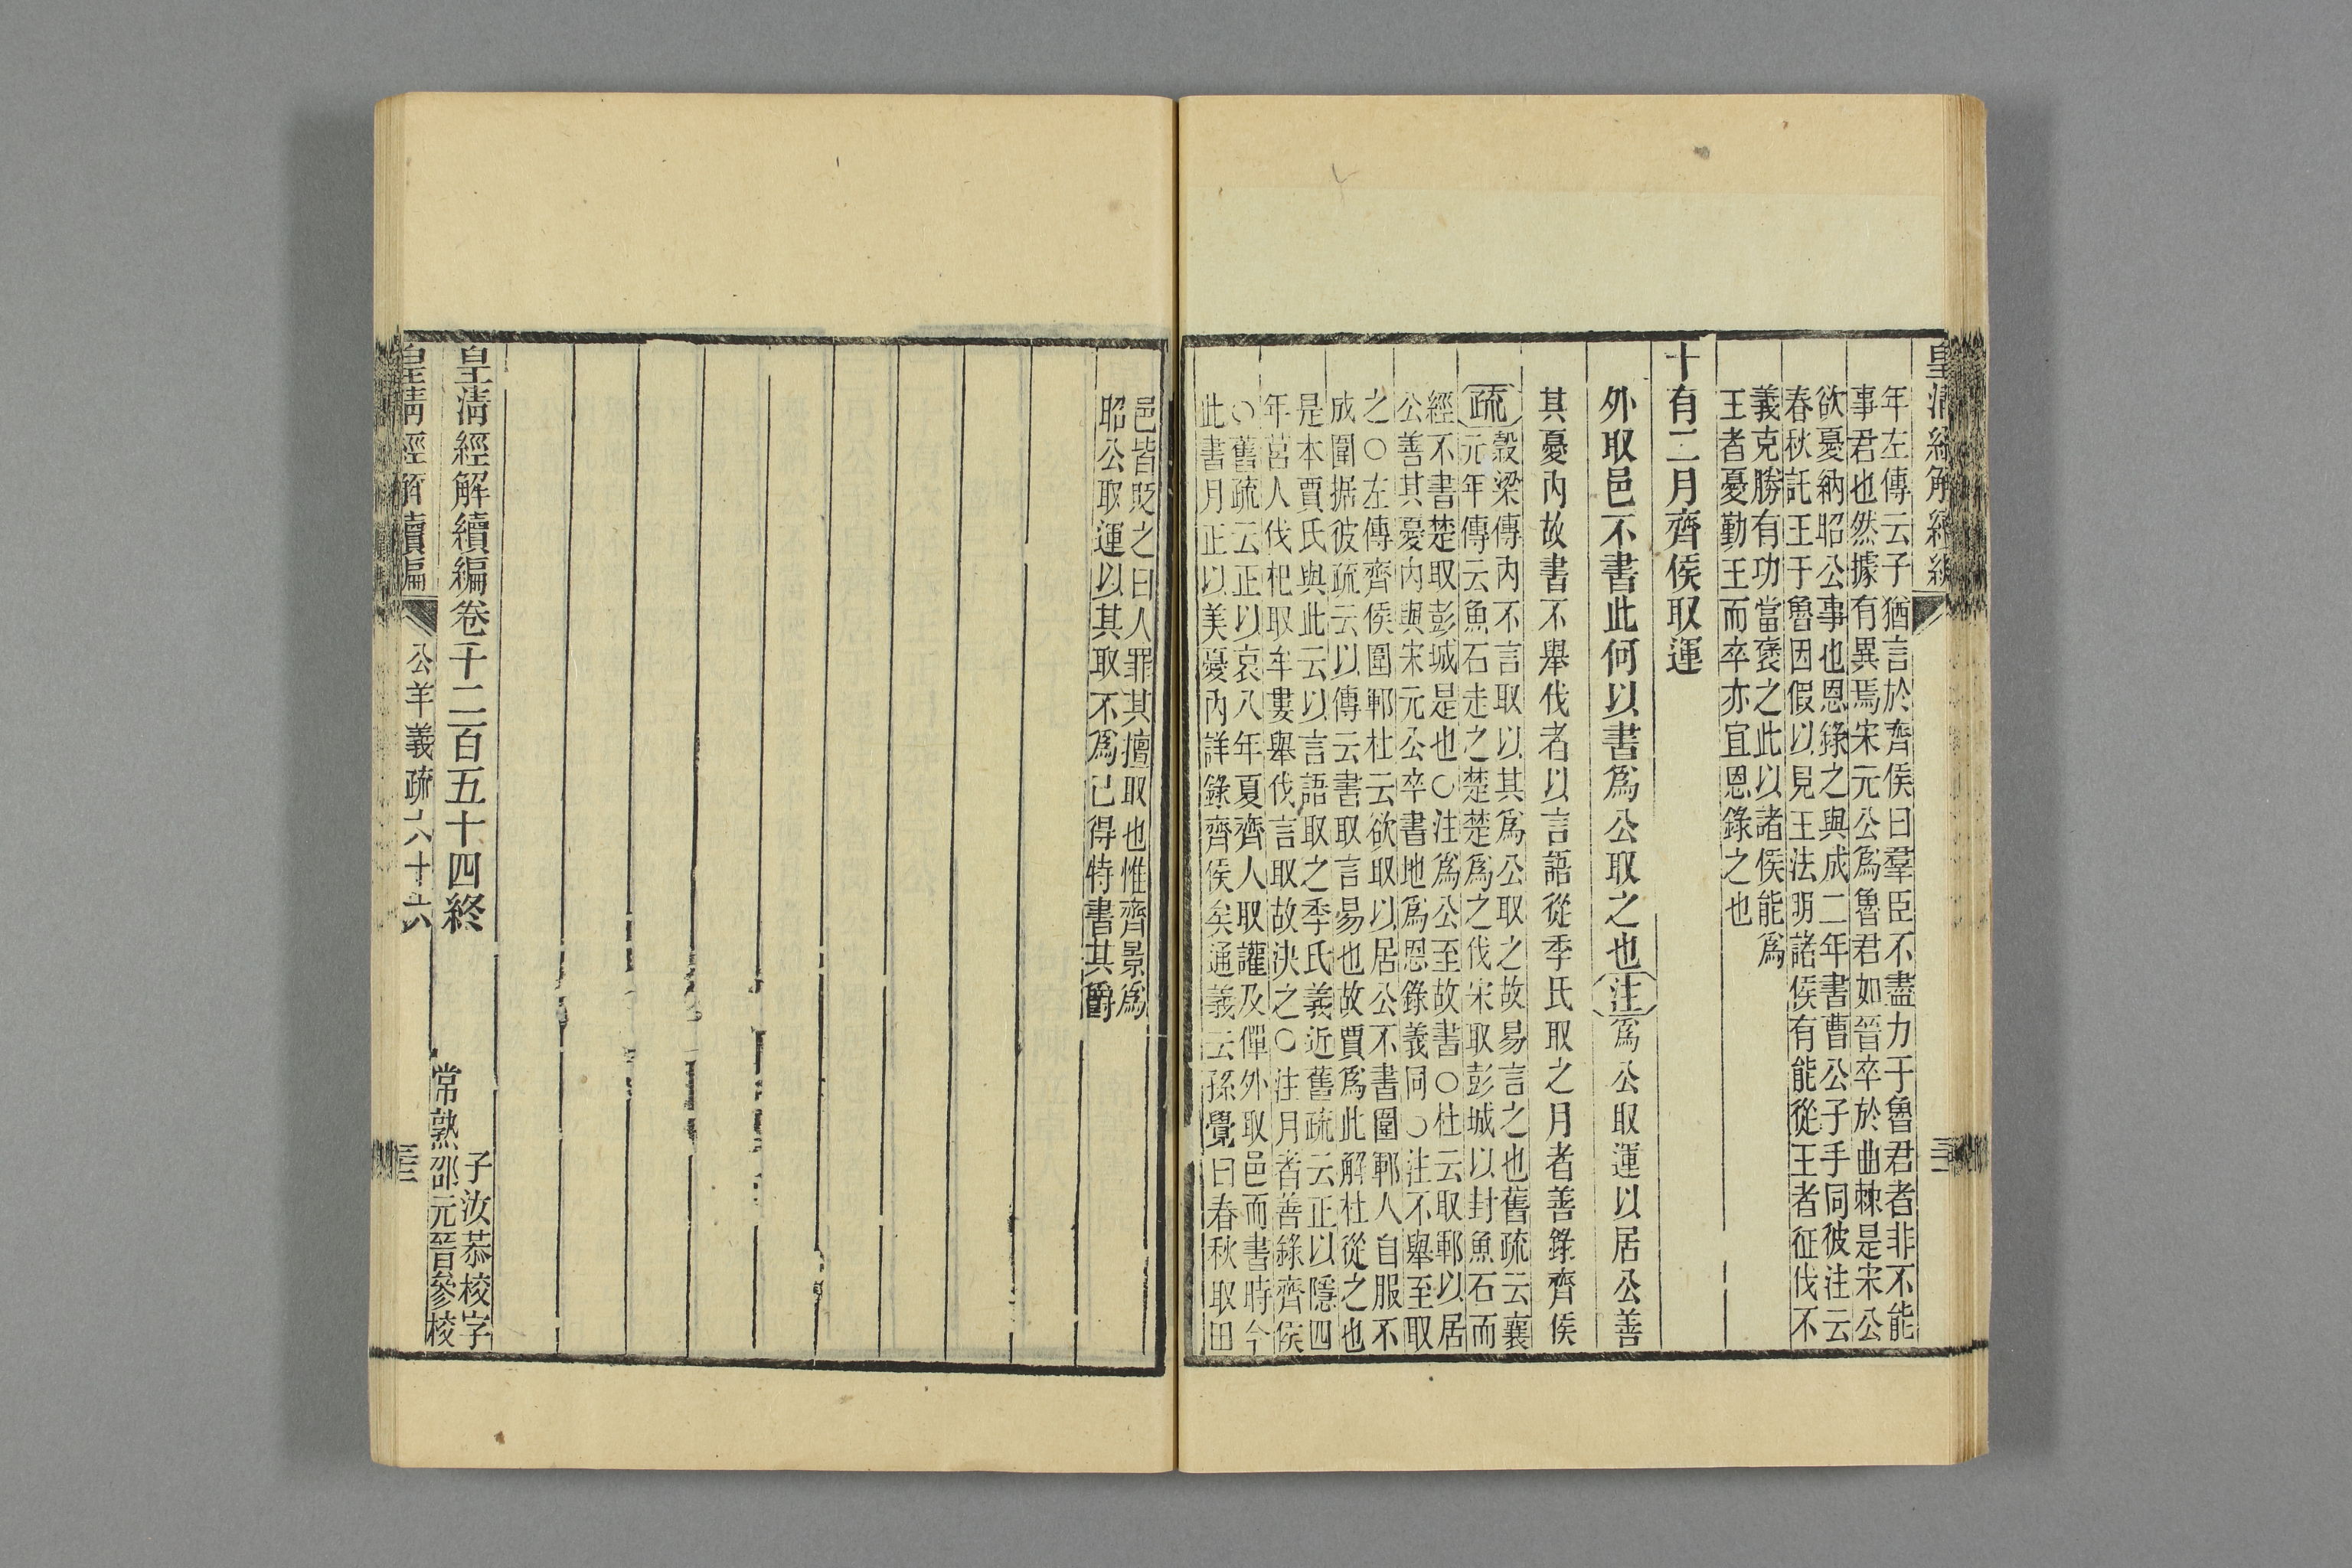 皇清經解續編
年左傳云子猶言於齊侯曰羣臣不盡力于魯君者非不能
事君也然據有異焉宋元公爲魯君如晉卒於曲棘是宋公
欲憂納昭公事也恩錄之與成二年書曹公子手同彼注云
春秋託王于魯因假以見王法明諸侯有能從王者征伐不
義克勝有功當褒之此以諸侯能爲
王者憂勤王而卒亦宜恩錄之也
十有二月齊侯取運
外取邑不書此何以書爲公取之也注爲公取運以居公善
其憂內故書不舉伐者以言語從季氏取之月者善錄齊侯
疏穀梁傳內不言取以其爲公取之故易言之也舊疏云襄
元年傳云魚石走之楚楚爲之伐宋取彭城以封魚石而
經不書楚取彭城是也○注爲公至故書○杜云取鄆以居
公善其憂內與宋元公卒書地爲恩錄義同○注不舉至取
之○左傳齊侯圍鄆杜云欲取以居公不書圍鄆人自服不
成圍据彼疏云以傳云書取言易也故賈爲此解杜從之也
是本賈氏與此云以言語取之季氏義近舊疏云正以隱四
年莒人伐杞取牟婁舉伐言取故決之○注月者善錄齊侯
○舊疏云正以哀八年夏齊人取讙及僤外取邑而書時今
此書月正以美憂內詳錄齊侯矣通義云孫覺曰春秋取田
邑皆貶之曰人罪其擅取也惟齊景爲
昭公取運以其取不爲己得特書其爵
皇清經解續編卷一千二百五十四終
子汝恭校字
常熟邵元晉參校
皇清經解續編
公羊義疏六十六